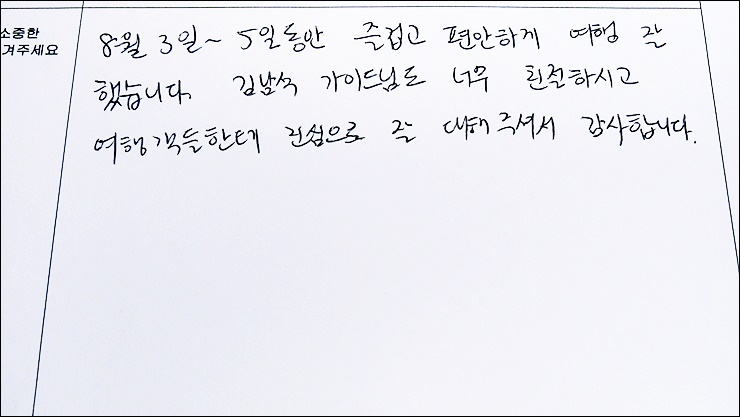 소중한
겨주세요
8월 3일~5일동안 즐겁고 편안하게 여행 잘
했습니다. 김남석 가이드님도 너무 친절하시고
여행객들한테 진심으로 잘 대해주셔서 감사합니다.